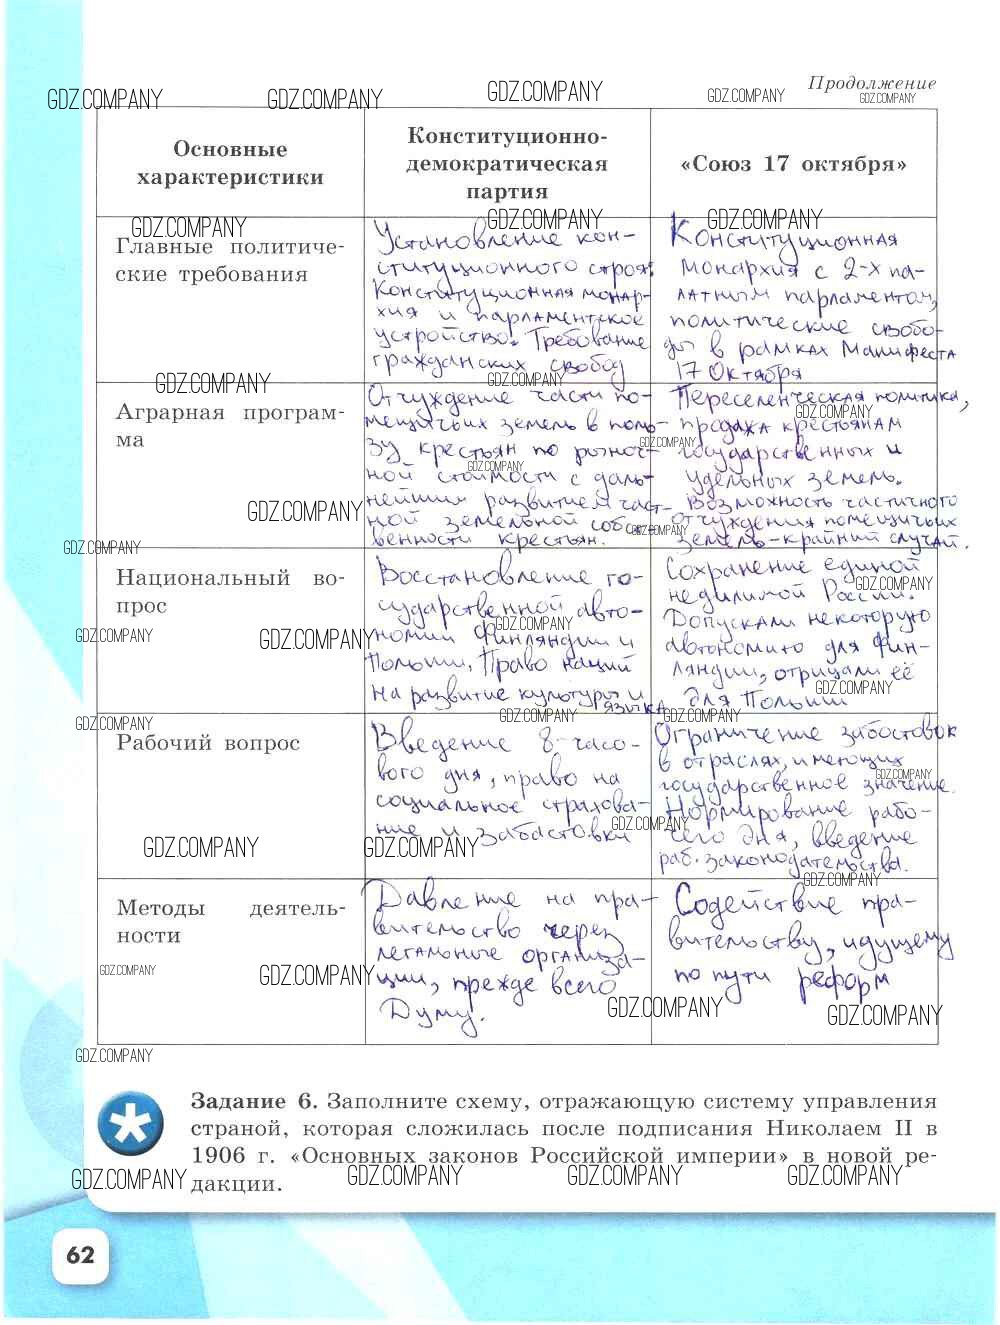 Продолжение
Основные
характеристики
Конституционно-
демократическая
партия
«Союз 17 октября»
Главные политиче-
ские требования
Установление кон-
ституционного строя.
Конституционная монар-
хия и парламентское
устройство. Требование
гражданских свобод
Конституционная
монархия с 2-х па-
латным парламентом,
политические свобо-
ды в рамках Манифеста
17 Октября
Аграрная програм-
ма
Отчуждение части по-
мещичьих земель в поль-
зу крестьян по рыноч-
ной стоимости с даль-
нейшим развитием част-
ной земельной собст-
венности крестьян.
Переселенческая политика,
продажа крестьянам
государственных и
удельных земель.
Возможность частичного
отчуждения помещичьих
земель-крайний случай.
Национальный во-
прос
Восстановление го-
сударственной авто-
номии Финляндии и
Польши, Право наций
на развитие культуры и
языка
Сохранение единой
неделимой России.
Допускали некоторую
автономию для Фин-
ляндии, отрицали её
для Польши
Рабочий вопрос
Введение 8-часо-
вого дня, право на
социальное страхова-
ние и забастовки
Ограничение забастовок
в отраслях, имеющих
государственное значение.
Нормирование рабо-
чего дня, введение
раб. законодательства.
Методы деятель-
ности
Давление на пра-
вительство через
легальные организа-
ции, прежде всего
Думу.
Содействие пра-
вительству, идущему
по пути реформ
Задание 6. Заполните схему, отражающую систему управления
страной, которая сложилась после подписания Николаем II в
1906 г. «Основных законов Российской империи» в новой ре-
дакции.
62
GDZ.COMPANY